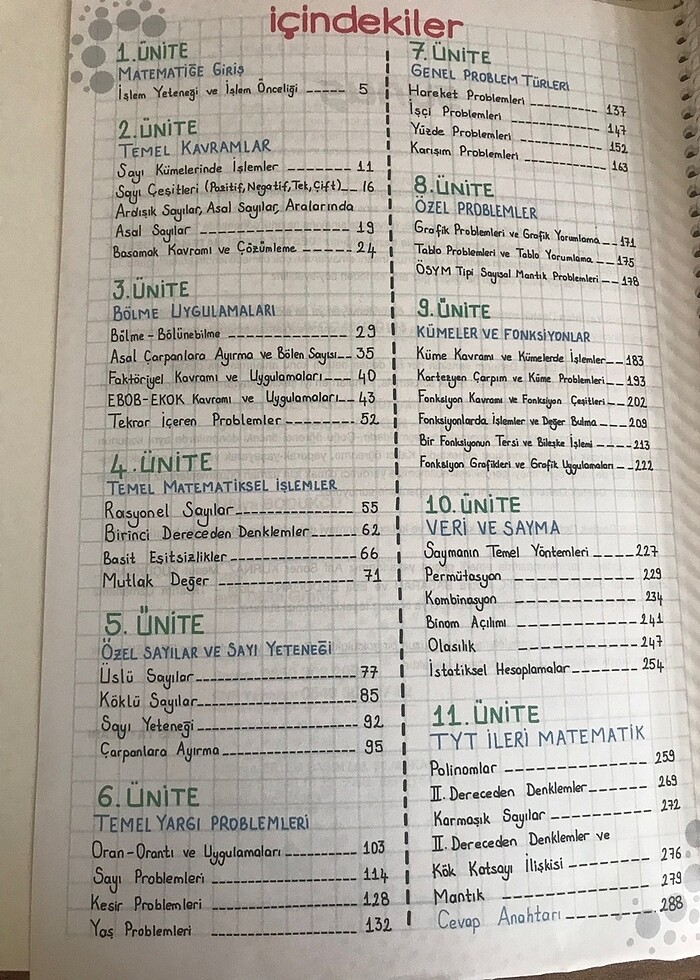 içindekiler
1.ÜNİTE
MATEMATİĞE GİRİŞ
İşlem Yeteneği ve İşlem Önceliği ----- 5
2.ÜNİTE
TEMEL KAVRAMLAR
Sayı Kümelerinde İşlemler ------- 11
Sayı Çeşitleri (Pozitif, Negatif, Tek, Çift)-- 16
Ardışık Sayılar, Asal Sayılar, Aralarında
Asal Sayılar ---------------- 19
Basamak Kavramı ve Çözümleme ----- 24
3.ÜNİTE
BÖLME UYGULAMALARI
Bölme - Bölünebilme ------------ 29
Asal Çarpanlara Ayırma ve Bölen Sayısı-- 35
Faktöriyel Kavramı ve Uygulamaları--- 40
EBOB-EKOK Kavramı ve Uygulamaları-- 43
Tekrar İçeren Problemler ------- 52
4.ÜNİTE
TEMEL MATEMATİKSEL İŞLEMLER
Rasyonel Sayılar------------ 55
Birinci Dereceden Denklemler----- 62
Basit Eşitsizlikler ------------ 66
Mutlak Değer ------------- 71
5. ÜNİTE
ÖZEL SAYILAR VE SAYI YETENEĞİ
Üslü Sayılar--------------- 77
Köklü Sayılar--------------- 85
Sayı Yeteneği--------------- 92
Çarpanlara Ayırma------------ 95
6. ÜNİTE
TEMEL YARGI PROBLEMLERİ
Oran-Orantı ve Uygulamaları------- 103
Sayı Problemleri ------------- 114
Kesir Problemleri ------------- 128
Yaş Problemleri ------------- 132
7. ÜNİTE
GENEL PROBLEM TÜRLERİ
Hareket Problemleri -------- 137
İşçi Problemleri ---------- 147
Yüzde Problemleri --------- 152
Karışım Problemleri --------- 163
8.ÜNİTE
ÖZEL PROBLEMLER
Grafik Problemleri ve Grafik Yorumlama -- 171
Tablo Problemleri ve Tablo Yorumlama --- 175
ÖSYM Tipi Sayısal Mantık Problemleri --- 178
9.ÜNİTE
KÜMELER VE FONKSİYONLAR
Küme Kavramı ve Kümelerde İşlemler-- 183
Kartezyen Çarpım ve Küme Problemleri-- 193
Fonksiyon Kavramı ve Fonksiyon Çeşitleri-- 202
Fonksiyonlarda İşlemler ve Değer Bulma -- 209
Bir Fonksiyonun Tersi ve Bileşke İşlemi --- 213
Fonksiyon Grafikleri ve Grafik Uygulamaları -- 222
10. ÜNİTE
VERİ VE SAYMA
Saymanın Temel Yöntemleri ----227
Permütasyon ------------ 229
Kombinasyon ------------ 234
Binom Açılımı ----------- 241
Olasılık ---------- 247
İstatiksel Hesoplamalar------- 254
11. ÜNİTE
TYT İLERİ MATEMATİK
Polinomlar ------------ 259
II. Dereceden Denklemler----- 269
Karmaşık Sayılar --------- 272
II. Dereceden Denklemler ve
Kök Katsayı İlişkisi -------- 276
Mantık -------------- 279
Cevap Anahtarı -------- 288